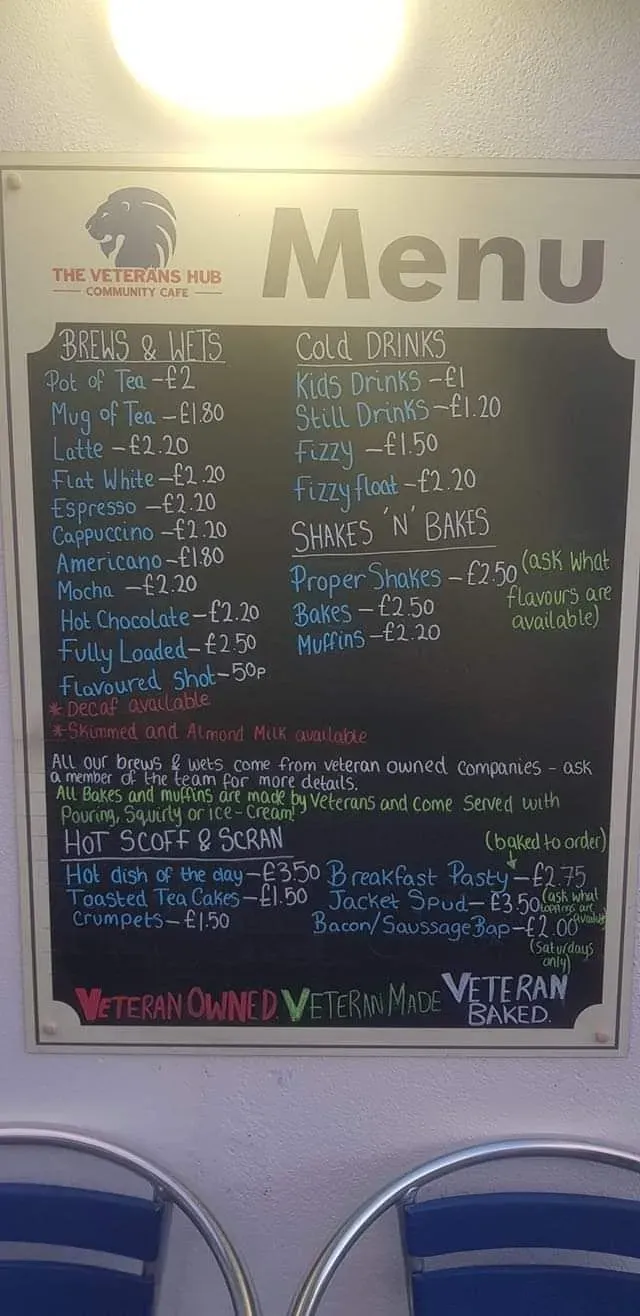 THE VETERANS HUB
COMMUNITY CAFE
Menu
BREWS & WETS
Pot of Tea - £2
Mug of Tea - £1.80
Latte - £2.20
Flat White - £2.20
Espresso - £2.20
Cappuccino - £2.20
Americano - £1.80
Mocha - £2.20
Hot Chocolate - £2.20
Fully Loaded - £2.50
Flavoured Shot - 50p
* Decaf available
* Skimmed and Almond Milk available
Cold DRINKS
Kids Drinks - £1
Still Drinks - £1.20
Fizzy - £1.50
Fizzy float - £2.20
SHAKES 'N' BAKES
Proper Shakes - £2.50 (ask what
flavours are
available)
Bakes - £2.50
Muffins - £2.20
All our brews & wets come from veteran owned companies - ask
a member of the team for more details.
All Bakes and muffins are made by Veterans and come served with
Pouring, Squirty or ice-cream!
HOT SCOFF & SCRAN
Hot dish of the day - £3.50
Toasted Tea Cakes - £1.50
Crumpets - £1.50
(baked to order)
Breakfast Pasty - £2.75
Jacket Spud - £3.50 (ask what
toppings are
available)
Bacon/Saussage Bap - £2.00
(Saturdays
only)
VETERAN OWNED. VETERAN MADE VETERAN
BAKED.